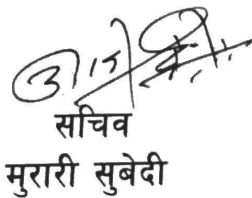 सचिव
मुरारी सुवेदी